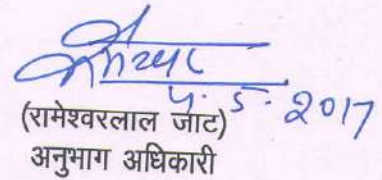 5. 2017
(रामेश्वरलाल जाट)
अनुभाग अधिकारी